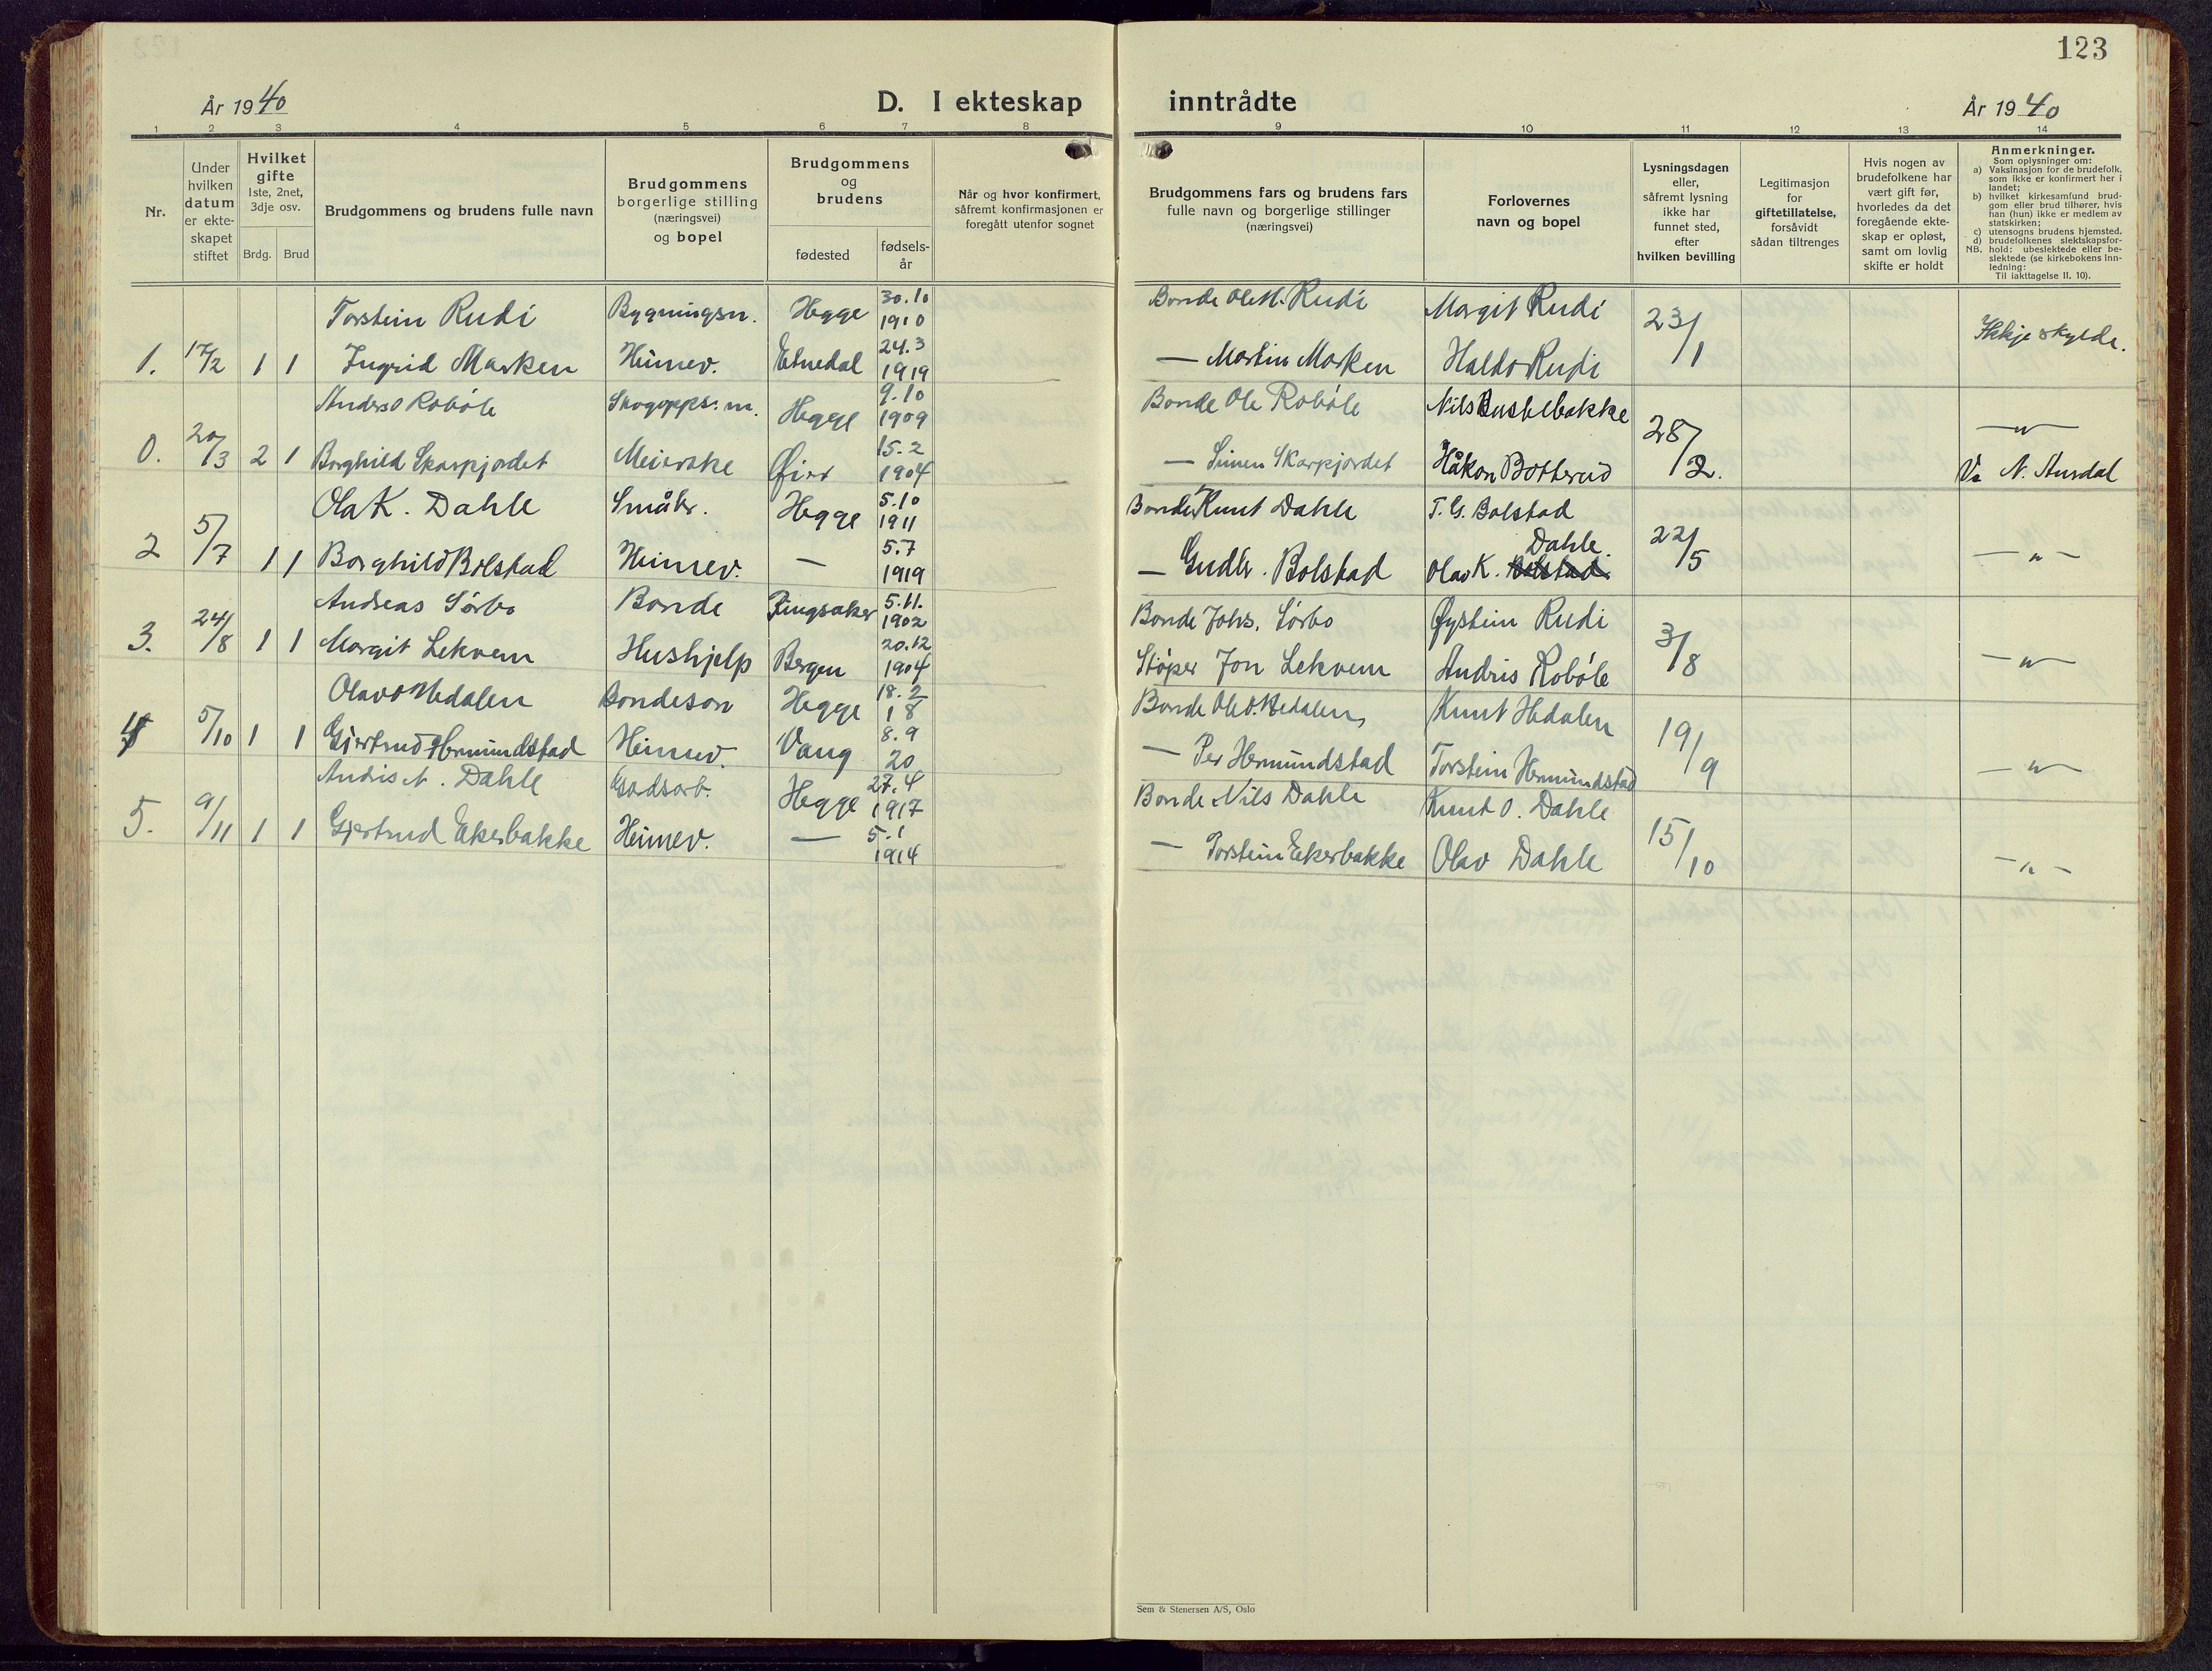 123
År 1940
D. I ekteskap inntrådte
År 1940
1 2 3 4 5 6 7 8 9 10 11 12 13 14
Nr.
Under
hvilken
datum
er ekte-
skapet
stiftet
Hvilket
gifte
1ste, 2net,
3dje osv.
Brdg. Brud
Brudgommens og brudens fulle navn
Brudgommens
borgerlige stilling
(næringsvei)
og bopel
Brudgommens
og
brudens
fødested
fødsels-
år
Når og hvor konfirmert,
såfremt konfirmasjonen er
foregått utenfor sognet
Brudgommens fars og brudens fars
fulle navn og borgerlige stillinger
(næringsvei)
Forlovernes
navn og bopel
Lysningsdagen
eller,
såfremt lysning
ikke har
funnet sted,
efter
hvilken bevilling
Legitimasjon
for
giftetillatelse,
forsåvidt
sådan tiltrenges
Hvis nogen av
brudefolkene har
vært gift før,
hvorledes da det
foregående ekte-
skap er opløst,
samt om lovlig
skifte er holdt
Anmerkninger.
Som oplysninger om:
a) Vaksinasjon for de brudefolk,
som ikke er konfirmert her i
landet;
b) hvilket kirkesamfund brud-
gom eller brud tilhører, hvis
han (hun) ikke er medlem av
statskirken;
c) utensogns brudens hjemsted.
d) brudefolkenes slektskapsfor-
NB. hold: ubeslektede eller be-
slektede (se kirkebokens inn-
ledning:
Til iakttagelse II. 10).
Torstein Rudi Bygningsn. Hegge 30.10 1910 Bonde Ole M. Rudi Margit Rudi 23/1 Ikkje skylde.
1. 17/2 1 1 Ingrid Marken Heimev. Etnedal 24.3 1919 — Martin Marken Haldo Rudi
Andris O Robøle Skogopps.m. Hegge 9.10 1909 Bonde Ole Robøle Nils Bushelbakke 28/2. —"—
0. 20/3 2 1 Borghild Skarpjordet Meierske Øier 15.2 1904 — Simen Skarpjordet Håkon Botterud N. Aurdal
Ola K. Dahle Småbr. Hegge 5.10 1911 Bonde Knut Dahle T. G. Bolstad 22/5
2 5/7 1 1 Borghild Bolstad Heimev. — 5.7 1919 — Gudbr. Bolstad Olav K. Bolstad Dahle. —"—
Andreas Sørbo Bonde Ringsaker 5.11. 1902 Bonde Johs. Sørbo Øystein Rudi 3/8
3. 24/8 1 1 Margit Lekvem Hushjelp Bergen 20.12 1904 Støper Jon Lekvem Andris Robøle —"—
Olav O Hedalen Bondeson Hegge 18.2 18 Bonde Ole O. Hedalen, Knut Hedalen 19/9
4 5/10 1 1 Gjertrud Hermundstad Heimev. Vang 8.9 20 — Per Hermundstad Torstein Hermundstad —"—
Andris N. Dahle Gardsarb. Hegge 27.4 1917 Bonde Nils Dahle Knut O. Dahle 15/10
5. 9/11 1 1 Gjertrud Ekerbakke Heimev. — 5.1 1914 — Torstein Ekerbakke Olav Dahle —"—
Sem & Stenersen A/S, Oslo